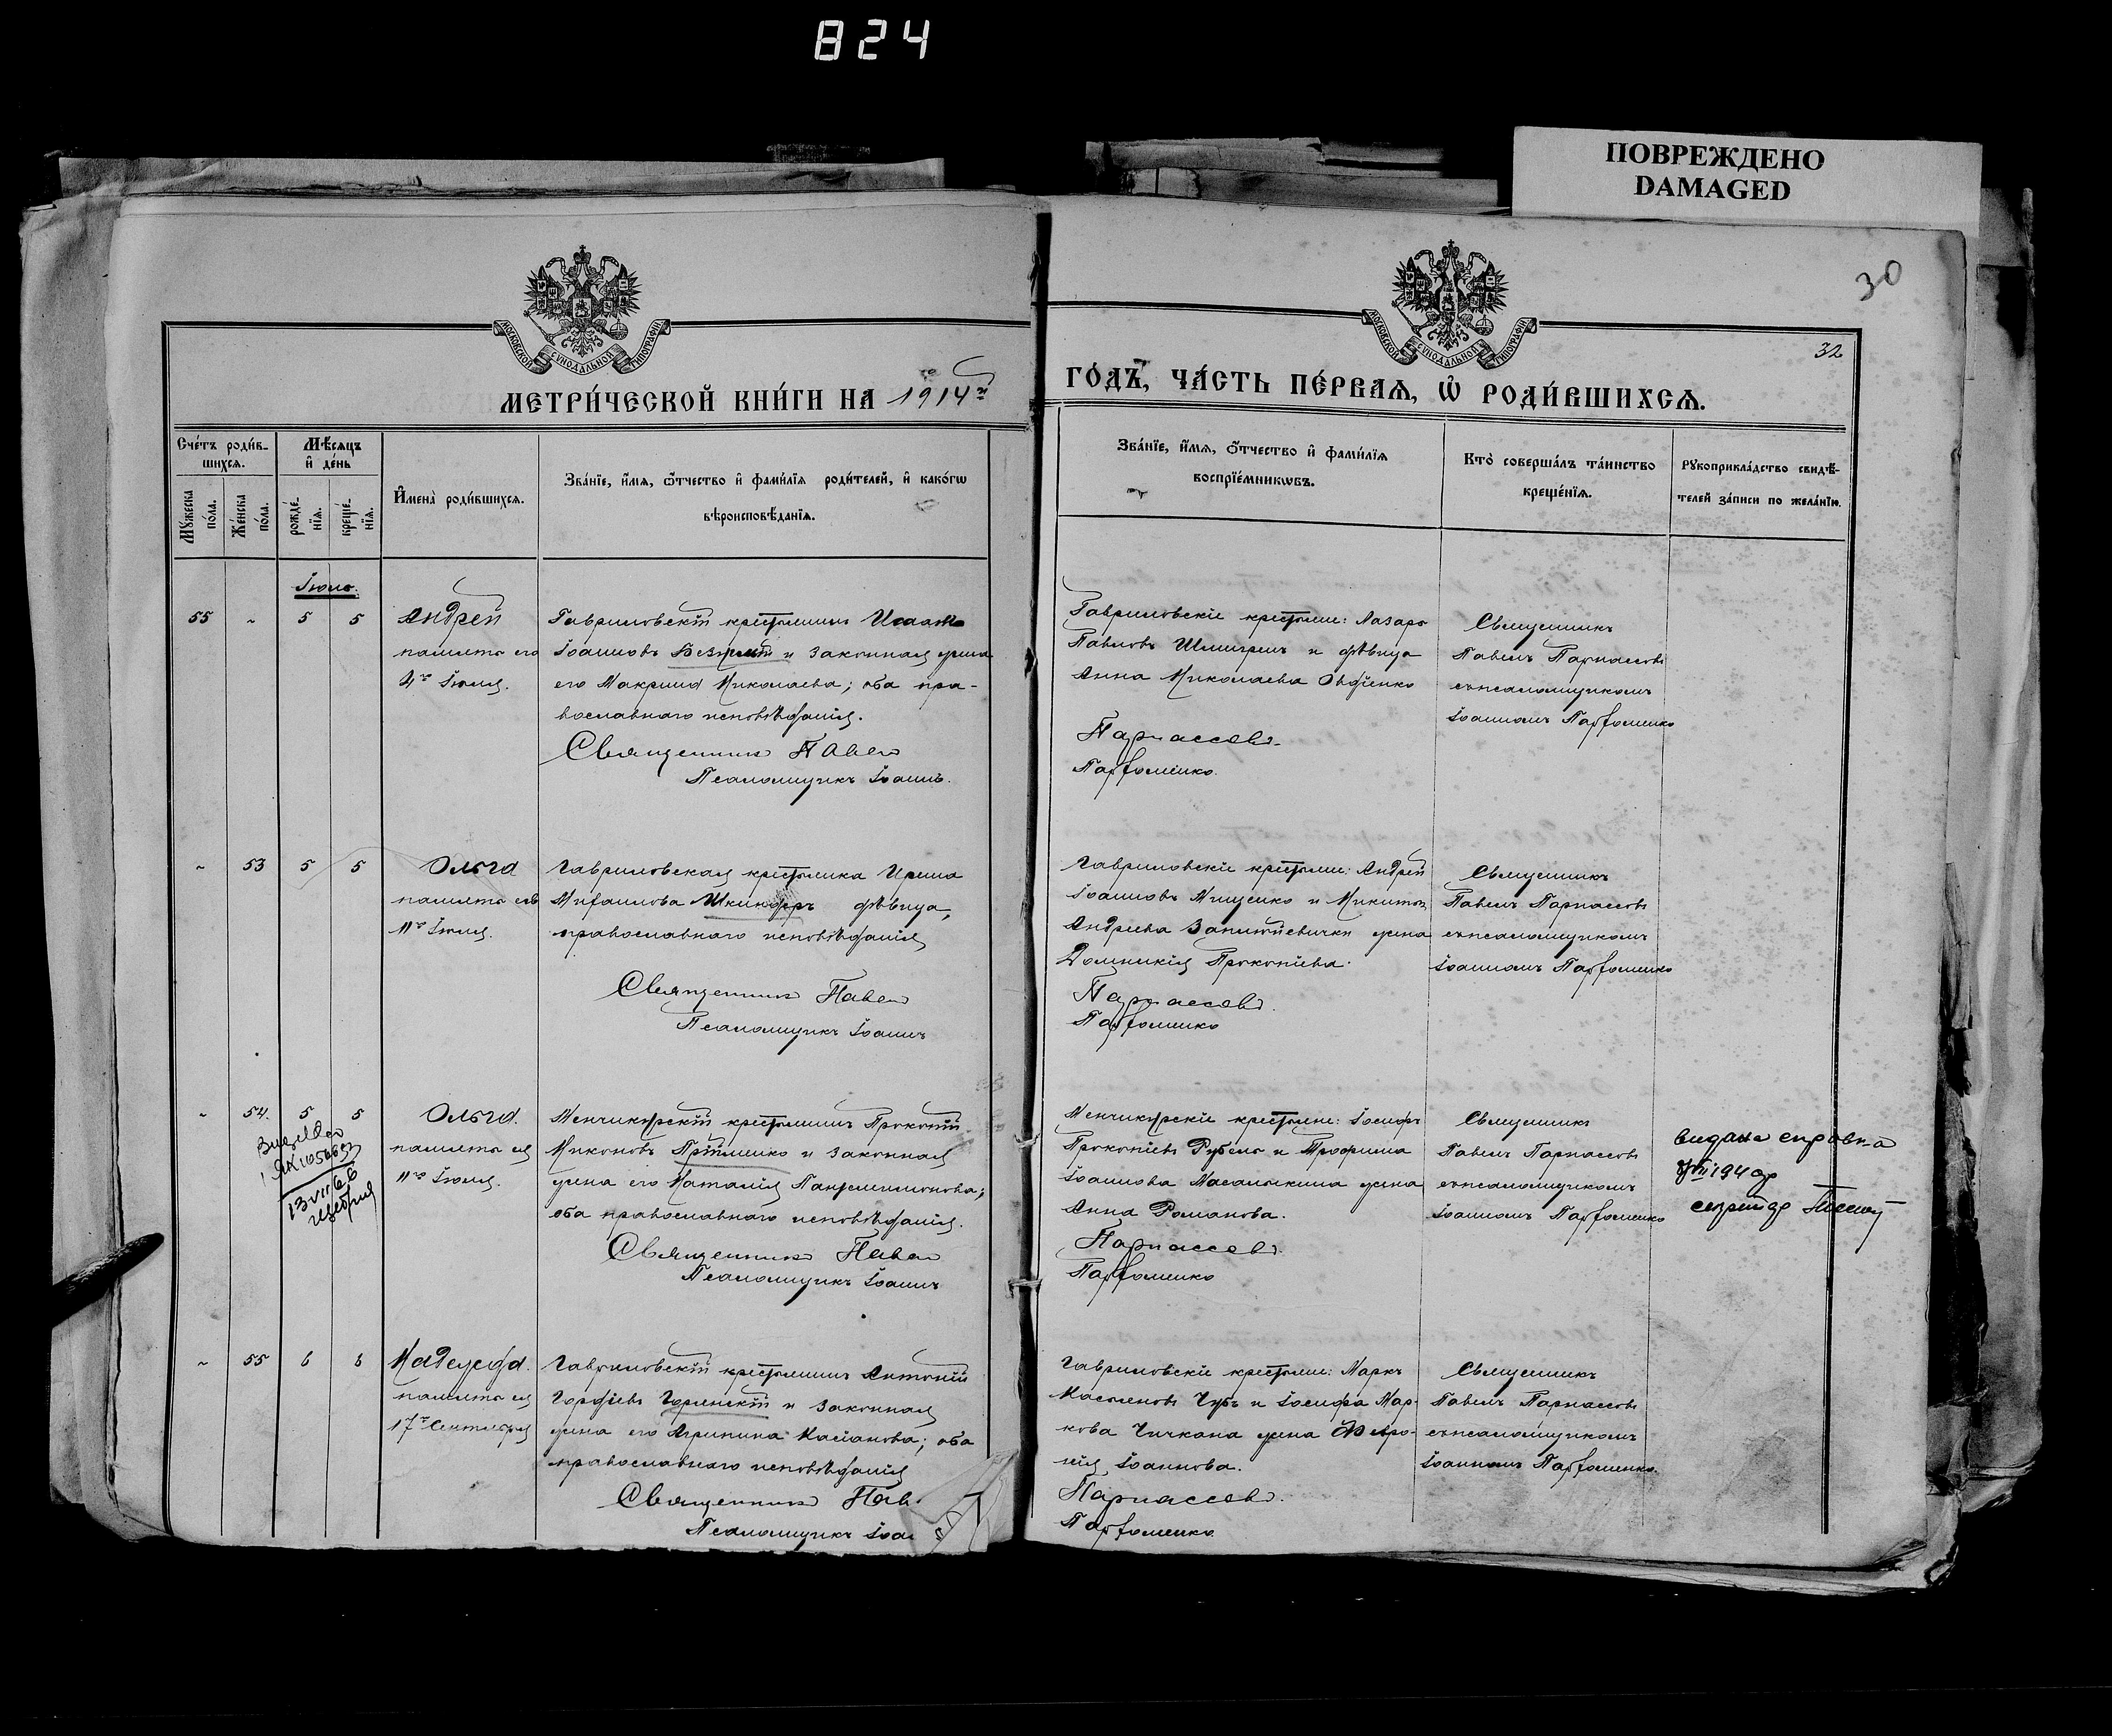 824
ПОВРЕЖДЕНО
DAMAGED
30
32
МОСКОВСКОЙ СУНОДАЛЬНОЙ ТИПОГРАФІИ
МОСКОВСКОЙ СУНОДАЛЬНОЙ ТИПОГРАФІИ
МЕТРИ́ЧЕСКОЙ КНИ́ГИ НА 1914й
ГО́ДЪ, ЧА́СТЬ ПЕ́РВАѦ, Ѽ РОДИ́ВШИХСѦ.
Сче́тъ роди́в-
шихся.
Мѣ́сяцъ
и҆ де́нь
Мꙋ́жеска
по́ла.
Же́нска
по́ла.
рожде́-
нїѧ.
креще́-
нїѧ.
И҆мена̀ роди́вшихсѧ.
Зва́нїе, и҆́мѧ, ѻ҆́тчество и҆ фами́лїѧ роди́телей, и҆ како́гѡ
вѣроисповѣ́данїѧ.
Зва́нїе, и҆́мѧ, ѻ҆́тчество и҆ фами́лїѧ
воспрїе́мникѡвъ.
Кто̀ соверша́лъ та́инство
креще́нїѧ.
Рꙋкоприкла́дство свидѣ́-
телей за́писи по жела́нїю.
Іюль.
55 " 5 5
Андрей
память его
4го Іюля.
Гавриловскій крестьянинъ Исаакъ
Іоанновъ и законная жена
его Макрина Николаева; оба пра-
вославнаго исповѣданія.
Священникъ Павел
Псаломщикъ Іоаннъ.
Гавриловскіе крестьяне: Лазарь
Павловъ и дѣвица
Анна Николаева Овдіенко
Парнассовъ.
Парфоменко.
Священникъ
Павелъ Парнассовъ
съ псаломщикомъ
Іоанномъ Парфоменко
" 53 5 5
Ольга
память ея
11го Іюля.
Гавриловская крестьянка Ирина
Михаилова Шкиндеръ дѣвица,
православнаго исповѣданія
Священникъ Павел
Псаломщикъ Іоаннъ
Гавриловскіе крестьяне: Андрей
Іоанновъ Мищенко и Никиты
Андреева жена
Домникія Прокопіева.
Парнассовъ.
Парфоменко
Священникъ
Павелъ Парнассовъ
съ псаломщикомъ
Іоанномъ Парфоменко
" 54. 5 5
Ольга.
память ея
11го Іюля.
13 VII 66
Менчикурскій крестьянинъ Прокопій
Никоновъ и законная
жена его Наталія Пантелеимонова;
оба православнаго исповѣданія.
Священникъ Павел
Псаломщикъ Іоаннъ
Менчикурскіе крестьяне: Іосифъ
Прокопіевъ и Трофима
Іоаннова Масалыкина жена
Анна Романова.
Парнассовъ.
Парфоменко
Священникъ
Павелъ Парнассовъ
съ псаломщикомъ
Іоанномъ Парфоменко
видана справка
" 55 6 6
Надежда.
память ея
17го Сентября
Гавриловскій крестьянинъ Антоній
Гордіевъ Горинскій и законная
жена его Агрипина Касіанова; оба
православнаго исповѣданія
Священникъ Пав
Псаломщикъ Іоа
Гавриловскіе крестьяне: Маркъ
Чубъ и Іосифа Мар-
кова Чичкана жена Февро-
нія Іоаннова.
Парнассовъ.
Парфоменко
Священникъ
Павелъ Парнассовъ
съ псаломщикомъ
Іоанномъ Парфоменко.